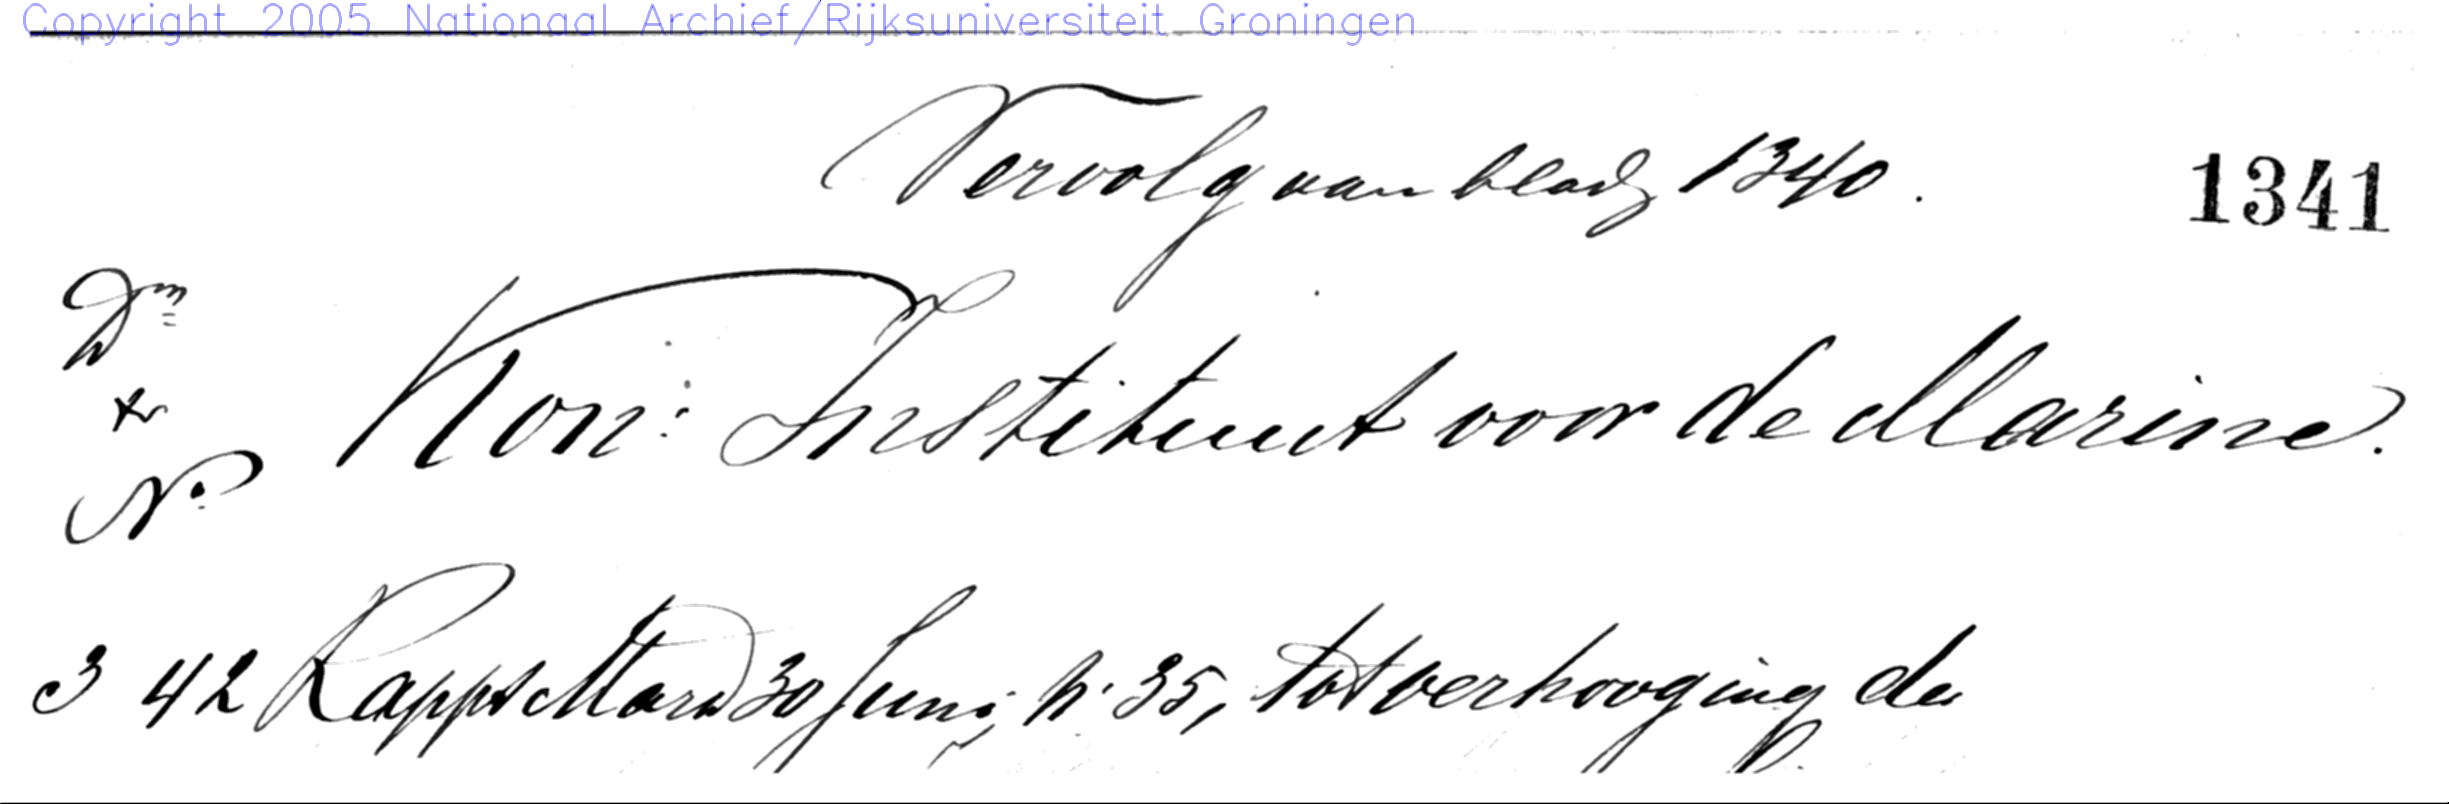 Copyright 2005 Nationaal Archief/Rijksuniversiteit Groningen
Vervolg van bladz 1340. 1341
Dm
+
No
Kon: Instituut voor de Marine.
3 42 Rappt Marine 30 Juni, n. 35, tot verhooging der